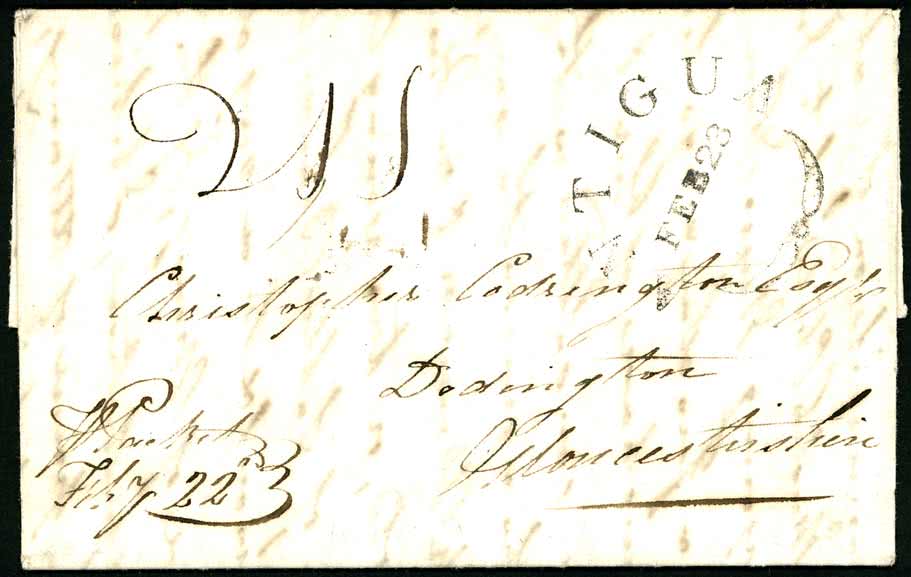 ANTIGUA
FEB 23
Christopher Codrington Esqr
Dodington
Gloucestershire
Packet
Feby 22nd